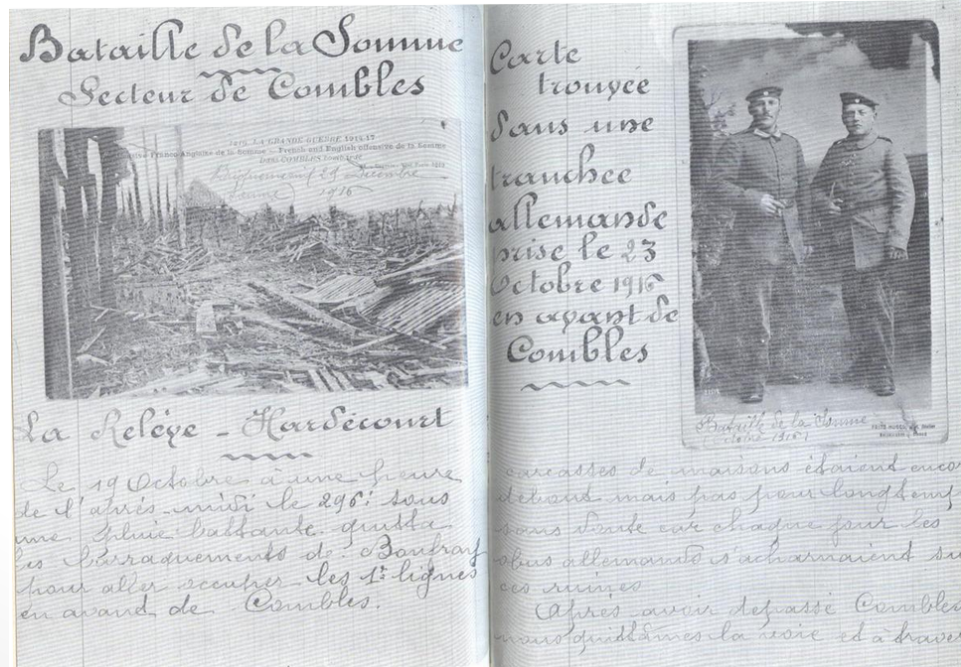 Bataille de la Somme
Secteur de Combles
LA GRANDE GUERRE
Franco-Anglaise de la Somme - French and English offensive of the Somme
COMBLES
Décembre
1916
La Relève - Hardécourt
Le 19 Octobre à une heure
de l'après-midi le 296e sous
une pluie battante quitta
les barraquements de Bonfray
pour aller occuper les 1e lignes
en avant de Combles.
Carte
trouvée
dans une
tranchée
allemande
prise le 23
Octobre 1916
en avant de
Combles
Bataille de la Somme
1916
carcasses de maisons étaient enco
debout mais pas pour longtemps
sans doute car chaque jour les
obus allemands s'acharnaient su
ces ruines
Après avoir dépassé Combles
nous quittâmes la voie et à traver